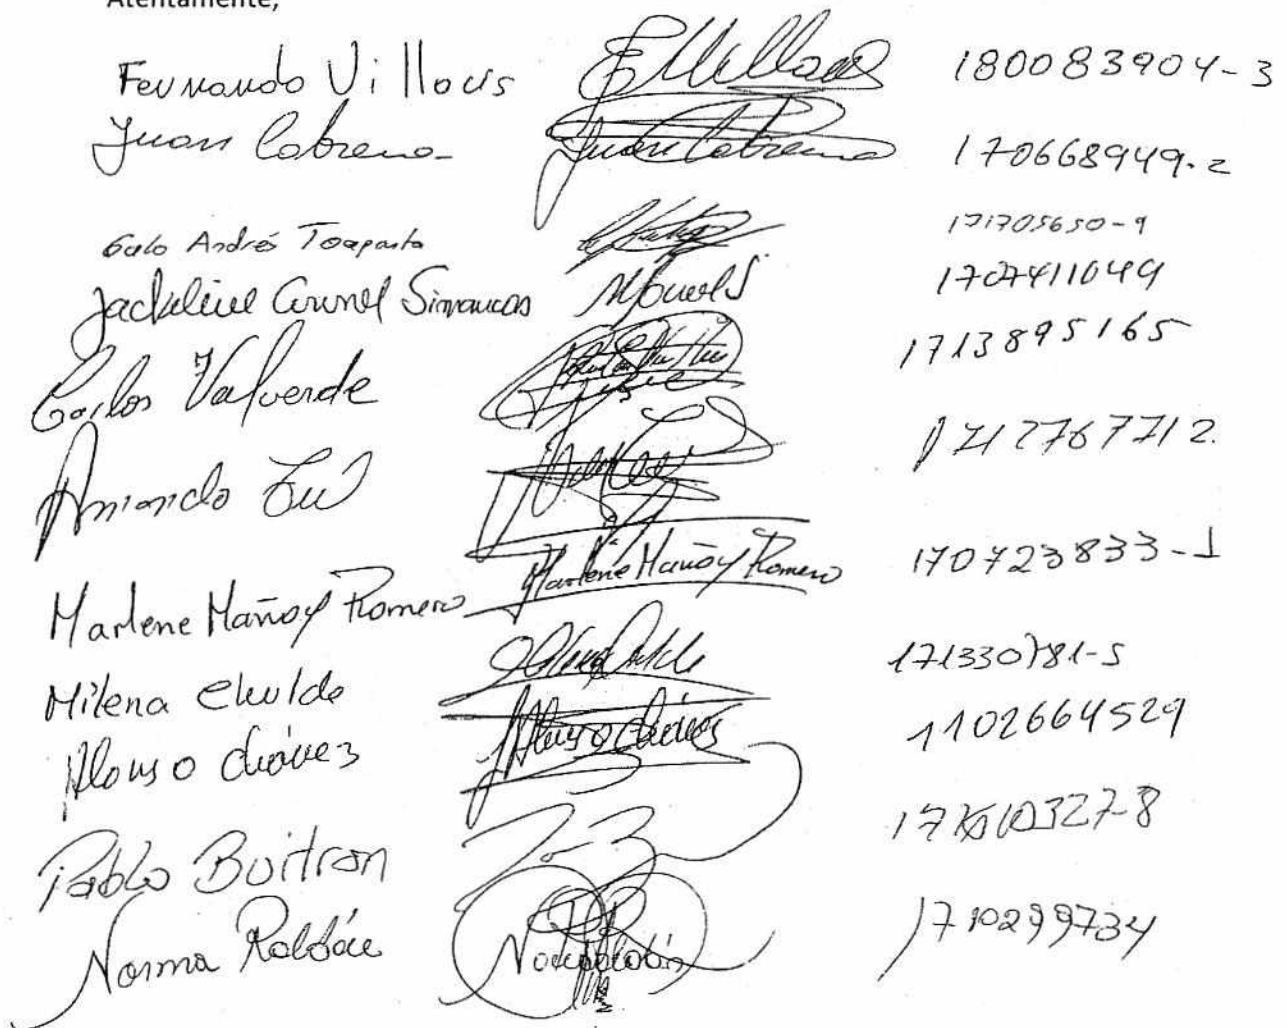 Atentamente,
Fernando Villacis 180083904-3
Juan Cabrera Juan Cabrera 170668949-2
Galo Andrés Toapanta 171705650-9
Jackeline Coronel Simancas 1707411049
Carlos Valverde 1713895165
Armando 1712767712
Marlene Mañay Romero Marlene Mañay Romero 170723833-1
Milena Chulde 171330781-5
Alonso Chávez Alonso Chávez 1102664529
Pablo Buitron
Norma Roldán 1710299734